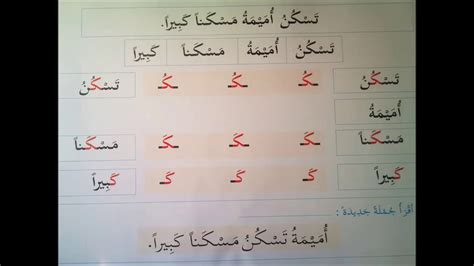 تَسْكُنُ أُمَيْمَةُ مَسْكَناً كَبِيراً.
تَسْكُنُ أُمَيْمَةُ مَسْكَناً كَبِيراً
تَسْكُنُ ـكُـ ـكُـ ـكُـ تَسْكُنُ
أُمَيْمَةُ
مَسْكَناً ـكَـ ـكَـ ـكَـ مَسْكَناً
كَبِيراً كَـ كَـ كَـ كَبِيراً
أَقْرَأُ جُمْلَةً جَدِيدَةً :
أُمَيْمَةُ تَسْكُنُ مَسْكَناً كَبِيراً.